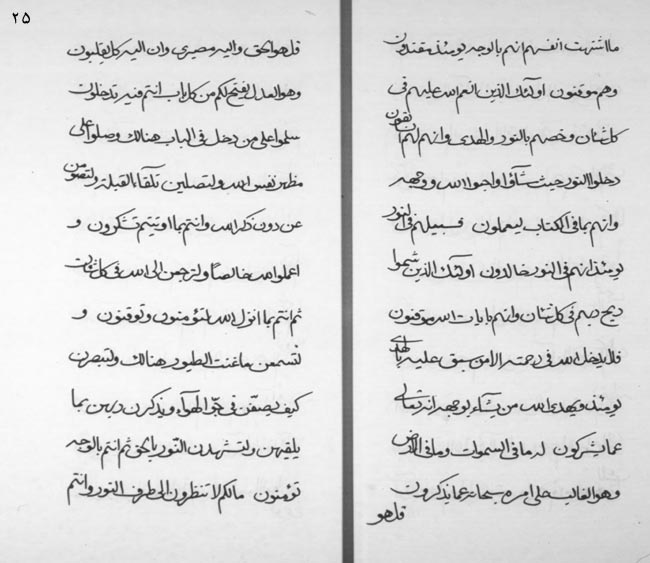 ما اشتهت انفسهم انهم بالوجه يومئذ
وهم موقنون اولئك الذين انعم الله عليهم فى
كل شان وخصهم بالنور والهدى وانهم لهم
دخلوا النور حيث شآؤا واجهوا الله ووجهه
وانهم بما فى الكتاب ليعملون فسبيلهم فى النور
يومئذ انهم فى النور خالدون اولئك الذين شموا
ريح ربهم فى كل شان وانهم بايات الله موقنون
فلا يدخل الله فى رحمته الا من سبق عليه بالهدى
يومئذ ويهدى الله من يشآء بوجهه انه تعالى
عما يشركون له ما فى السموات وما فى الارض
وهو الغالب على امره سبحانه عما يذكرون
قل هو
٢٥
قل هو الحق واليه مصيرى وان اليه كل يقلبون
وهو العدل يفتح لكم من كل باب انتم فيه تدخلون
سلموا على من دخل فى الباب هنالك وصلوا على
مظهر نفس الله ولتصلين تلقآء القبلة
عن دون ذكر الله وانتم بما اوتيتم تشكرون و
اعملوا لله خالصاً ولترجعن الى الله فى كل شان
ثم انتم بما انزل الله لتؤمنون وتوقنون و
لتسمعن ما غنت الطيور هنالك ولتبصرن
كيف يصفن فى جو الهوآء ويذكرن ربهن بما
يلقيهن ولتشهدن النور بالحق ثم انتم بالوجه
تؤمنون مالكم لا تنظرون الى طرف النور وانتم